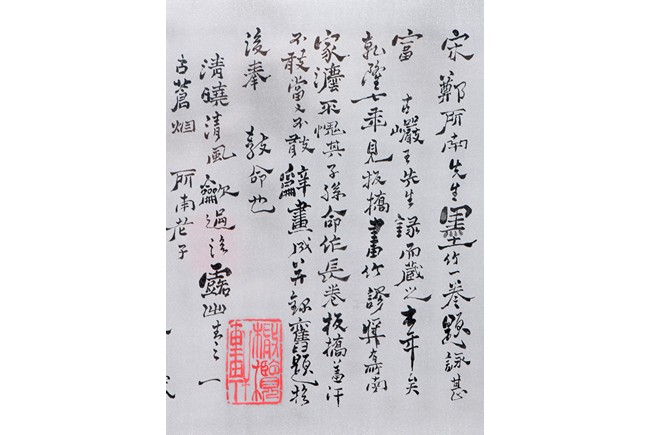 宋鄭所南先生墨竹一卷題詠甚
富 古巖王先生錄而藏之有年矣
乾隆七年見板橋畫竹謬獎有所南
家法不愧其子孫命作長卷板橋羞汗
不敢當又不敢辭畫成并錄舊題於
後奉 教命也
清曉清風過後露幽一
古蒼烟 所南老子